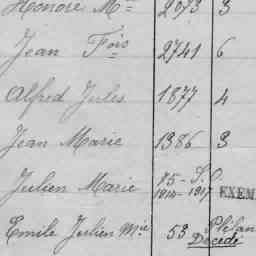 Honoré Mie 2073 3
Jean Fois 2741 6
Alfred Jules 1877 4
Jean Marie 1386 3
Julien Marie 15- S.O.
1914-1917 EXEM
Emile Julien Mie 53
Décédé